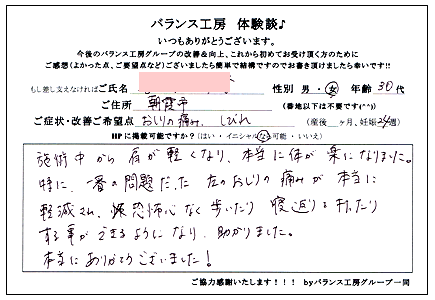 バランス工房 体験談♪
いつもありがとうございます。
今後のバランス工房グループの改善&向上、これから初めてお受け頂く方のために
ご感想(よかった点、ご要望点など)ございましたら簡単で結構ですのでお書き頂けましたら幸いです!!
もし差し支えなければご氏名 性別 男・女 年齢 30代
ご住所 朝霞市 (番地以下は不要です(^^))
ご症状・改善ご希望点 おしりの痛み、しびれ (産後 ヶ月、妊娠24週)
HPに掲載可能ですか?(はい・イニシャルなら可能・いいえ)
施術中から肩が軽くなり、本当に体が楽になりました。
特に、一番の問題だった左のおしりの痛みが本当に
軽減され、恐怖心なく歩いたり寝返りを打ったり
する事ができるようになり、助かりました。
本当にありがとうございました!
ご協力感謝いたします!!! byバランス工房グループ一同